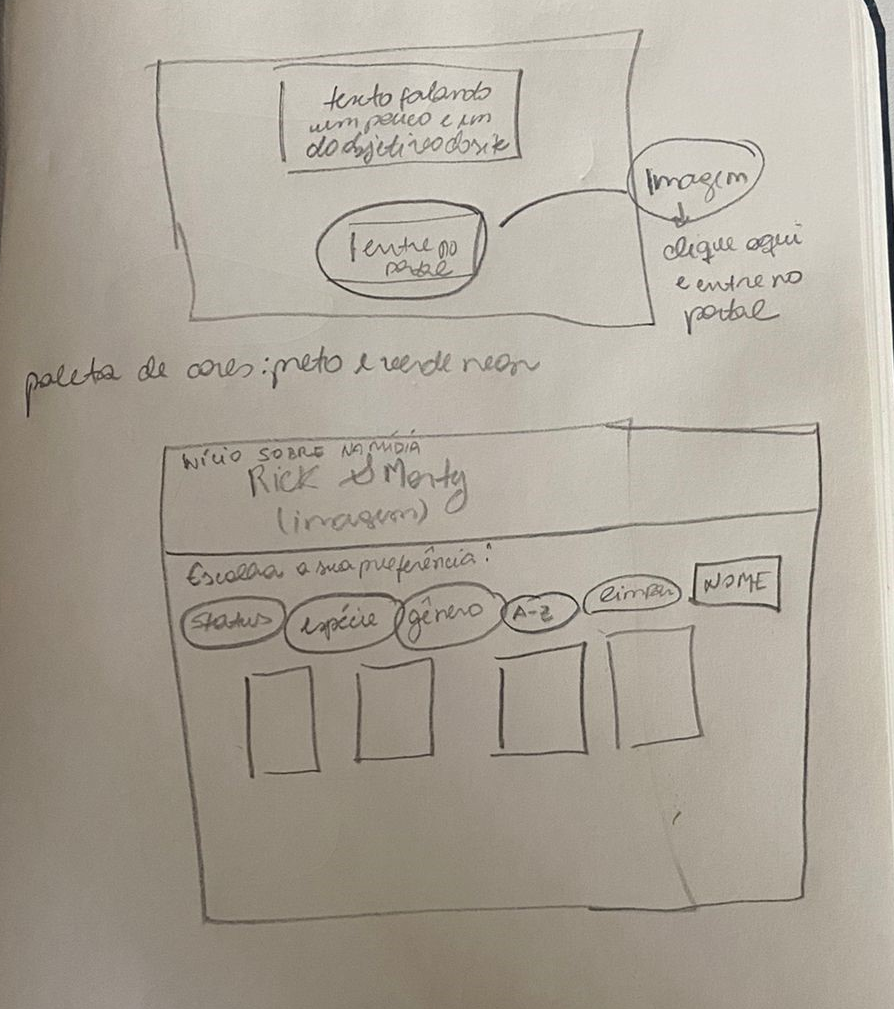 texto falando
um pouco e um
do objetivo do site
entre no
portal
Imagem
clique aqui
e entre no
portal
paleta de cores: preto e verde neon
INÍCIO SOBRE NA MÍDIA
Rick & Morty
(imagem)
Escolha a sua preferência:
Status espécie gênero A-Z limpar NOME